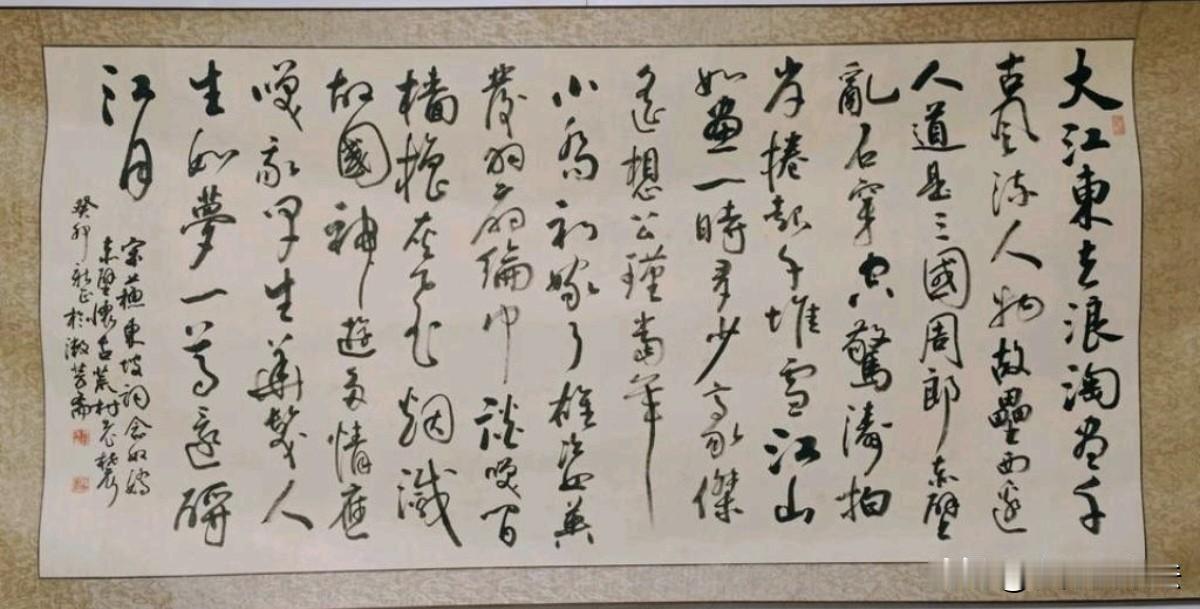 大江東去浪淘盡千
古風流人物故壘西邊
人道是三國周郎赤壁
亂石穿空驚濤拍
岸捲起千堆雪江山
如畫一時多少豪傑
遙想公瑾當年
小喬初嫁了雄姿英
發羽扇綸巾談笑間
檣櫓灰飛烟滅
故國神遊多情應
笑我早生華髮人
生如夢一尊還酹
江月
宋蘇東坡詞念奴嬌
赤壁懷古荒村老
癸卯新正於漱芳齋